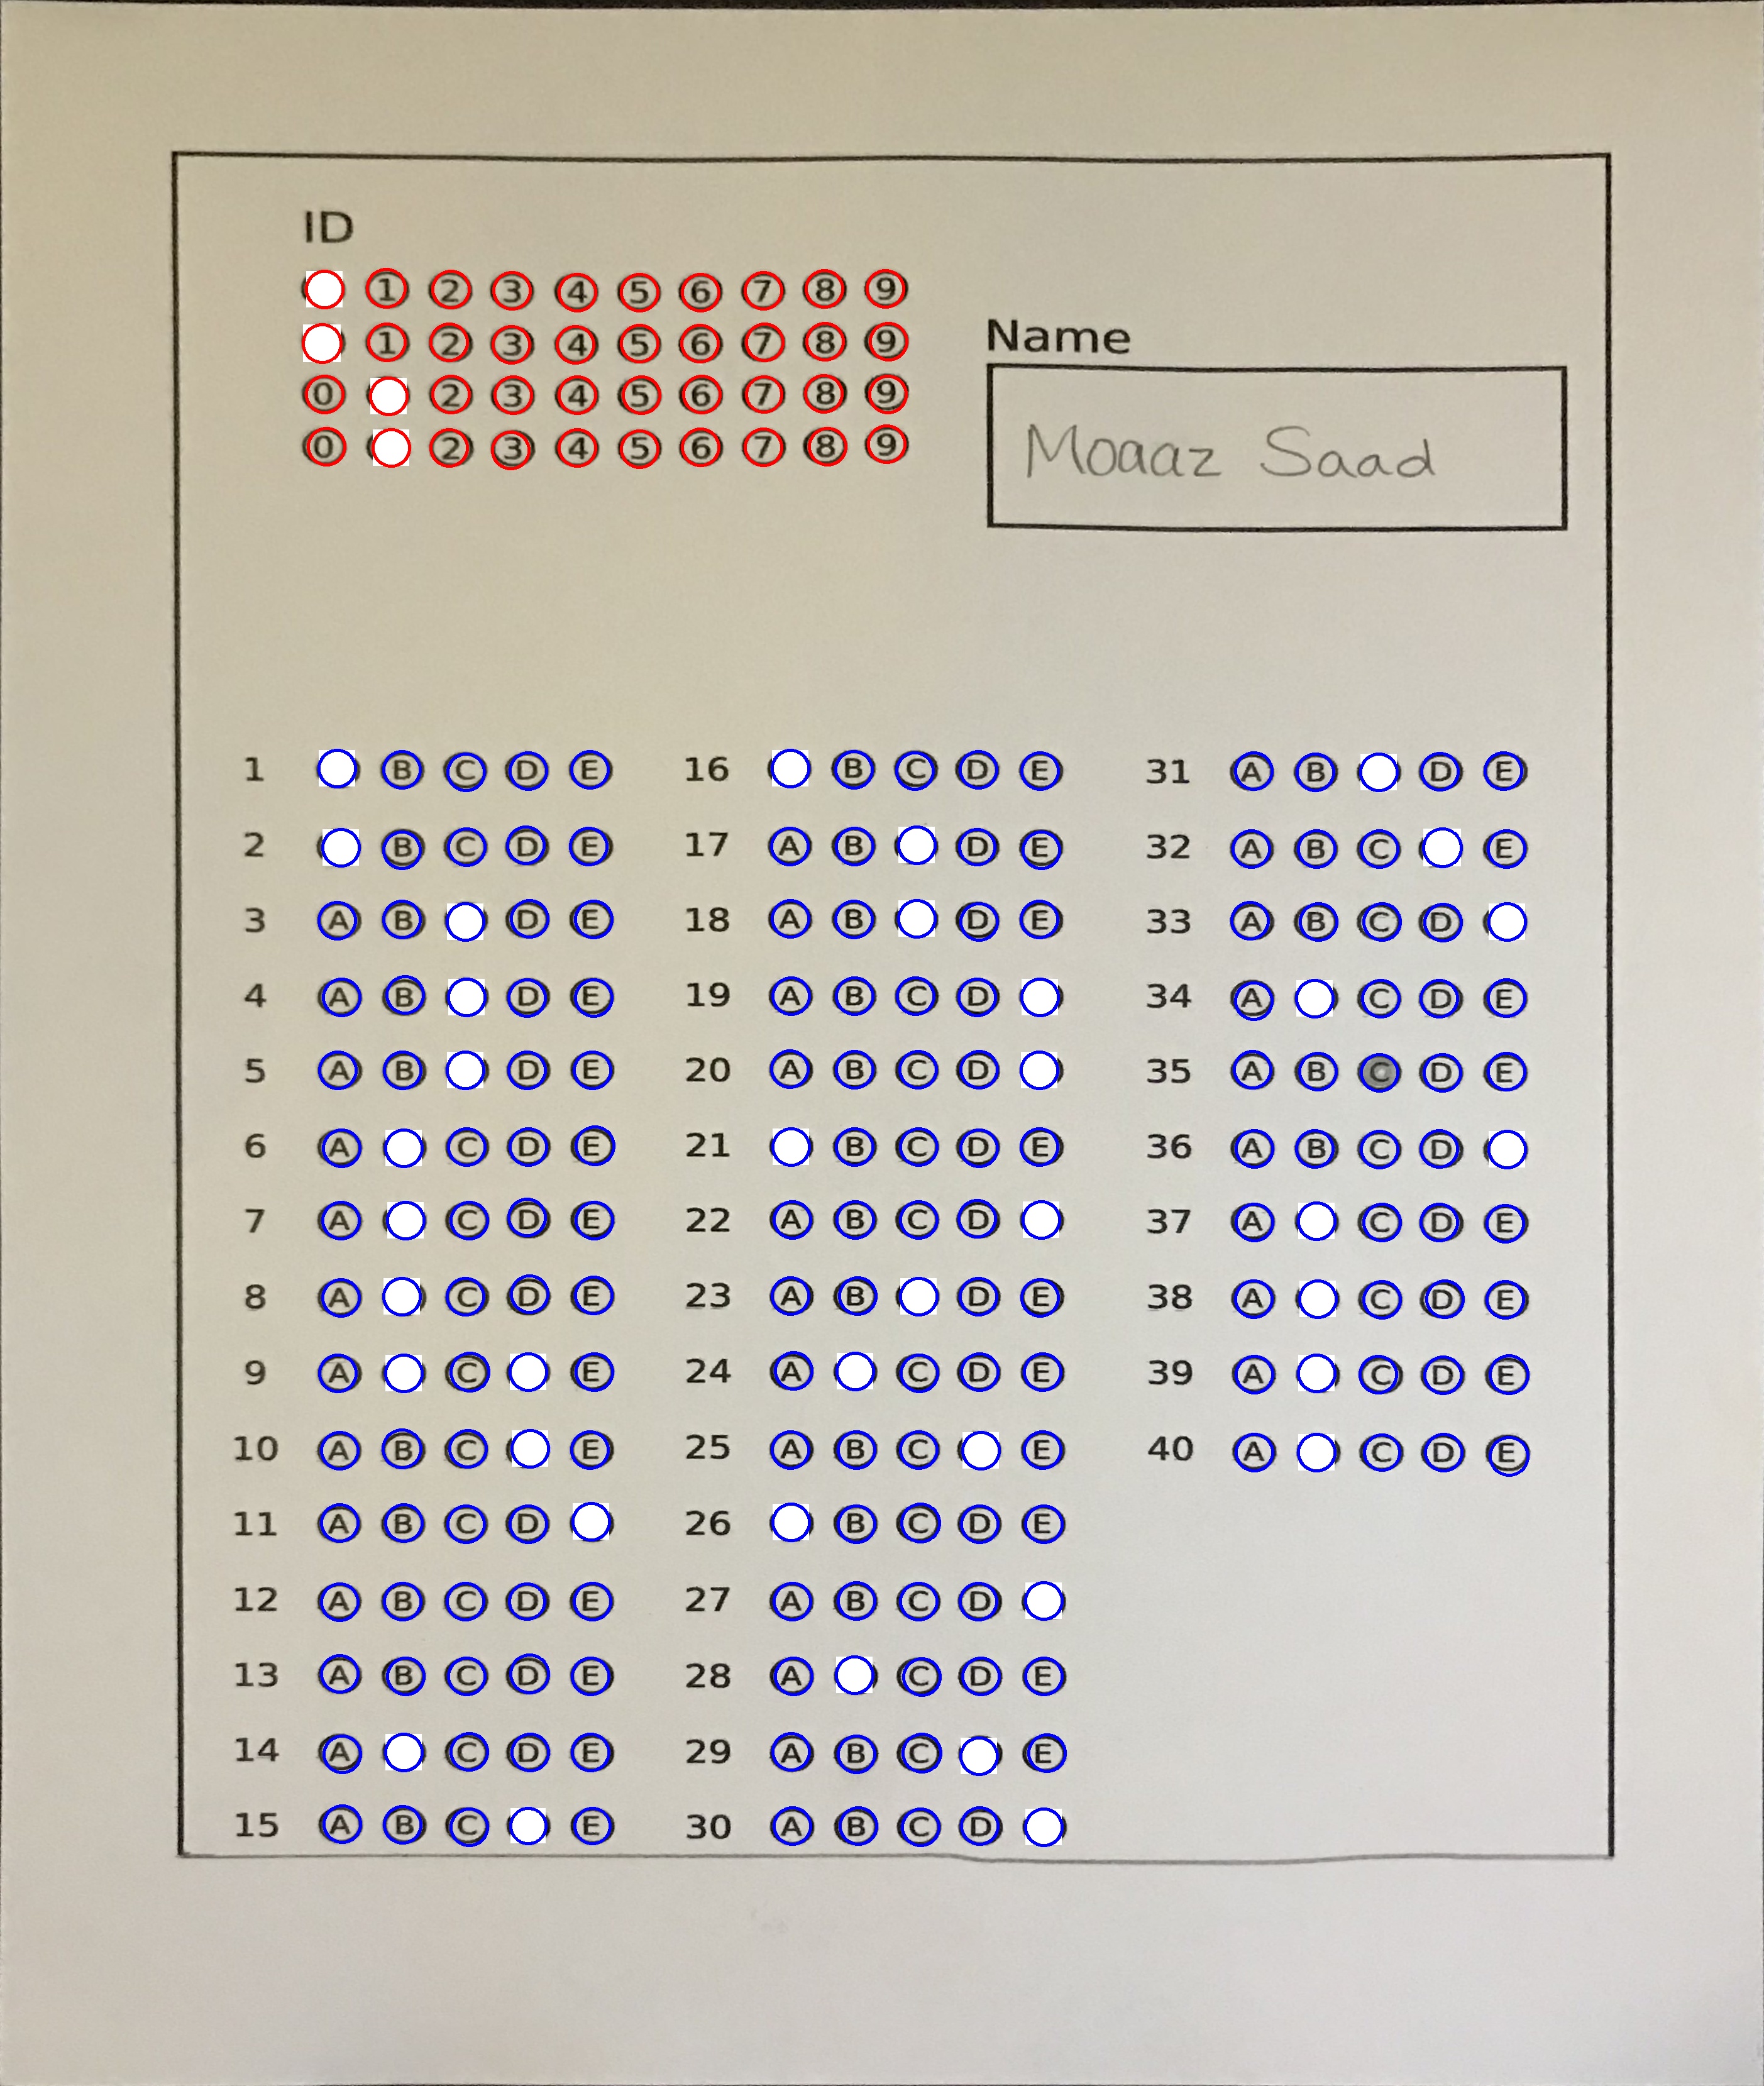 ID
1 2 3 4 5 6 7 8 9
1 2 3 4 5 6 7 8 9
0 2 3 4 5 6 7 8 9
0 2 3 4 5 6 7 8 9
Name
Moaaz Saad
1 B C D E
2 B C D E
3 A B D E
4 A B D E
5 A B D E
6 A C D E
7 A C D E
8 A C D E
9 A C E
10 A B C E
11 A B C D
12 A B C D E
13 A B C D E
14 A C D E
15 A B C E
16 B C D E
17 A B D E
18 A B D E
19 A B C D
20 A B C D
21 B C D E
22 A B C D
23 A B D E
24 A C D E
25 A B C E
26 B C D E
27 A B C D
28 A C D E
29 A B C E
30 A B C D
31 A B D E
32 A B C E
33 A B C D
34 A C D E
35 A B C D E
36 A B C D
37 A C D E
38 A C D E
39 A C D E
40 A C D E